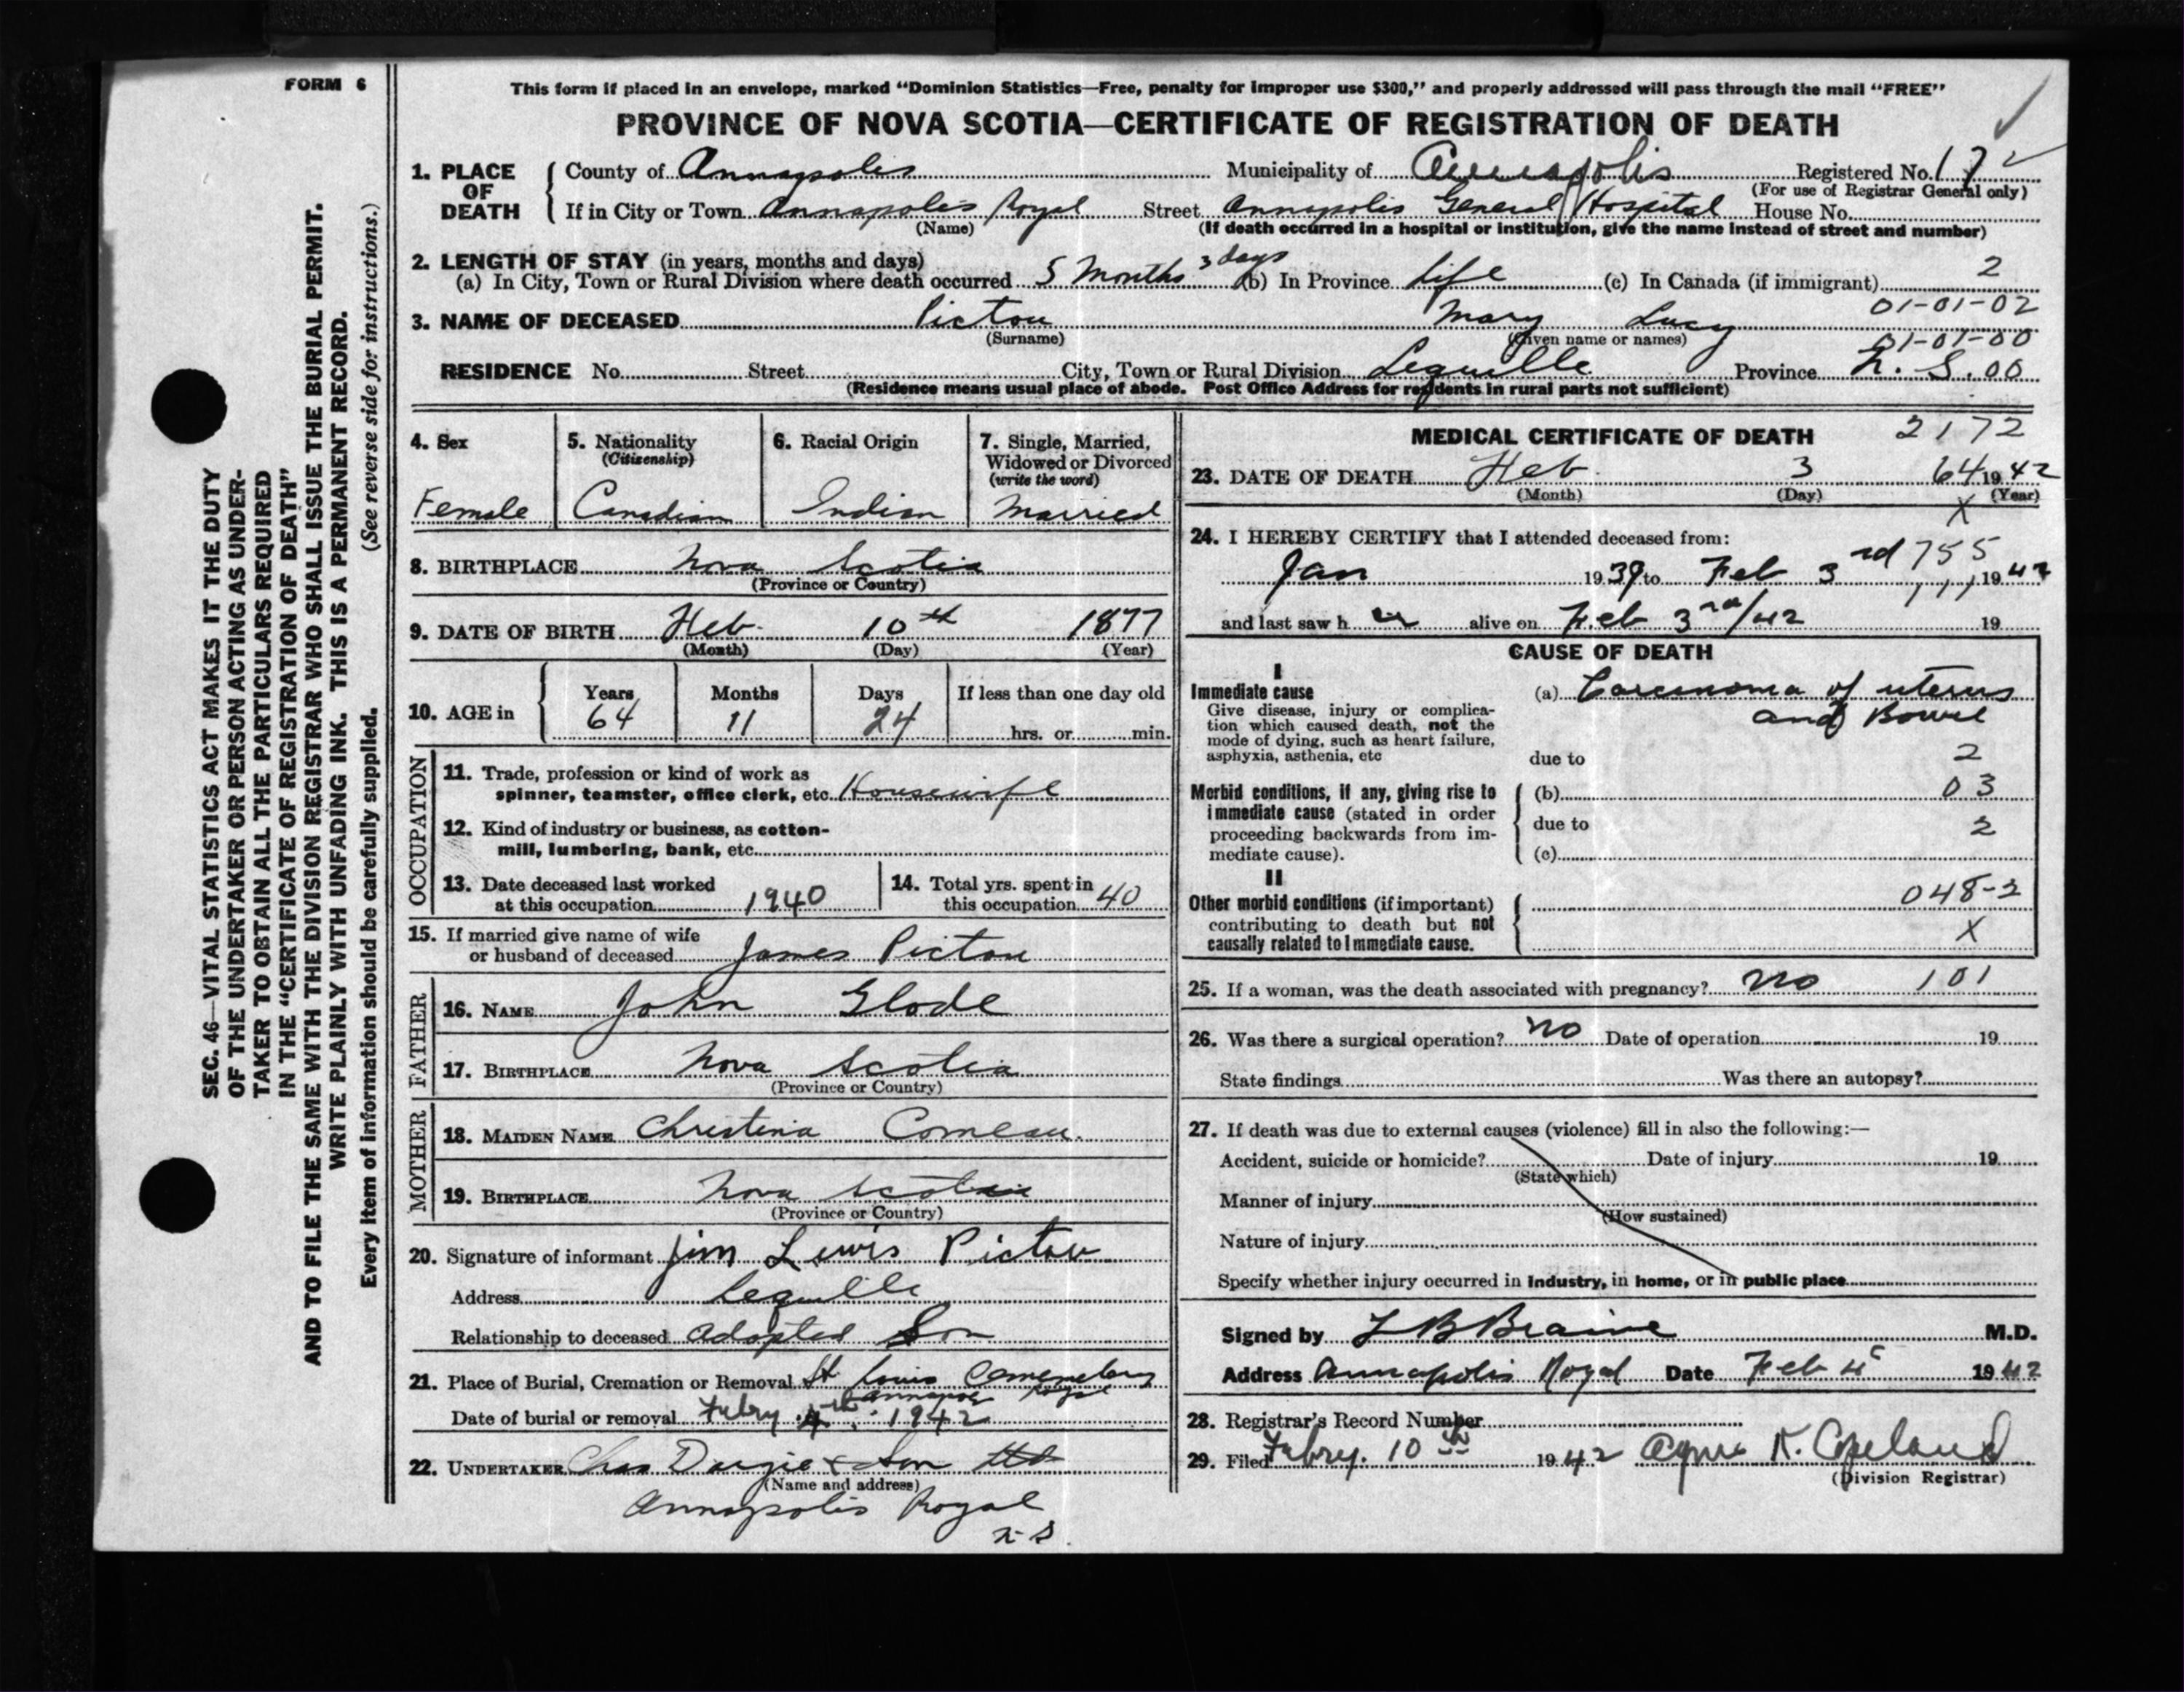 FORM 6
This form if placed in an envelope, marked "Dominion Statistics—Free, penalty for improper use $300," and properly addressed will pass through the mail "FREE"
PROVINCE OF NOVA SCOTIA—CERTIFICATE OF REGISTRATION OF DEATH
1. PLACE OF DEATH { County of Annapolis Municipality of Annapolis Registered No. 172
(For use of Registrar General only)
If in City or Town Annapolis Royal Street Annapolis General Hospital House No.
(Name) (If death occurred in a hospital or institution, give the name instead of street and number)
2. LENGTH OF STAY (in years, months and days)
(a) In City, Town or Rural Division where death occurred 5 Months 3 days (b) In Province Life (c) In Canada (if immigrant) 2
01-01-02
3. NAME OF DECEASED Pictou Mary Lucy
(Surname) (Given name or names) 01-01-00
RESIDENCE No. Street City, Town or Rural Division Lequille Province N. S. 00
(Residence means usual place of abode. Post Office Address for residents in rural parts not sufficient)
4. Sex
Female
5. Nationality
(Citizenship)
Canadian
6. Racial Origin
Indian
7. Single, Married,
Widowed or Divorced
(write the word)
Married
8. BIRTHPLACE Nova Scotia
(Province or Country)
9. DATE OF BIRTH Feb. 10th 1877
(Month) (Day) (Year)
10. AGE in { Years Months Days If less than one day old
64 11 24
hrs. or min.
OCCUPATION
11. Trade, profession or kind of work as
spinner, teamster, office clerk, etc. Housewife
12. Kind of industry or business, as cotton-
mill, lumbering, bank, etc.
13. Date deceased last worked
at this occupation 1940
14. Total yrs. spent in
this occupation 40
15. If married give name of wife
or husband of deceased James Pictou
FATHER
16. NAME John Glode
17. BIRTHPLACE Nova Scotia
(Province or Country)
MOTHER
18. MAIDEN NAME Christina Comeau.
19. BIRTHPLACE Nova Scotia
(Province or Country)
20. Signature of informant Jim Lewis Pictou
Address Lequille
Relationship to deceased Adopted Son
21. Place of Burial, Cremation or Removal St Louis Cemenetery
Annapolis Royal
Date of burial or removal Febry 1942
22. UNDERTAKER Chas Dargie & Son Ltd
(Name and address)
Annapolis Royal
N-S.
MEDICAL CERTIFICATE OF DEATH 2172
23. DATE OF DEATH Feb. 3 64 1942
(Month) (Day) X (Year)
24. I HEREBY CERTIFY that I attended deceased from:
755
Jan 1939 to Feb 3rd 1942
and last saw her alive on Feb 3rd/42 19
CAUSE OF DEATH
I
Immediate cause
Give disease, injury or complica-
tion which caused death, not the
mode of dying, such as heart failure,
asphyxia, asthenia, etc
(a) Carcinoma of uterus
and Bowel
due to 2
Morbid conditions, if any, giving rise to
immediate cause (stated in order
proceeding backwards from im-
mediate cause).
(b) 03
due to 2
(c)
II
Other morbid conditions (if important)
contributing to death but not
causally related to immediate cause.
048-2
X
25. If a woman, was the death associated with pregnancy? no 101
26. Was there a surgical operation? no Date of operation 19
State findings Was there an autopsy?
27. If death was due to external causes (violence) fill in also the following:—
Accident, suicide or homicide? Date of injury 19
(State which)
Manner of injury
(How sustained)
Nature of injury
Specify whether injury occurred in industry, in home, or in public place
Signed by L B Braine M.D.
Address Annapolis Royal Date Feb 4 1942
28. Registrar's Record Number
29. Filed Febry. 10th 1942 K. Copeland
(Division Registrar)
SEC. 46—VITAL STATISTICS ACT MAKES IT THE DUTY
OF THE UNDERTAKER OR PERSON ACTING AS UNDER-
TAKER TO OBTAIN ALL THE PARTICULARS REQUIRED
IN THE "CERTIFICATE OF REGISTRATION OF DEATH"
AND TO FILE THE SAME WITH THE DIVISION REGISTRAR WHO SHALL ISSUE THE BURIAL PERMIT.
WRITE PLAINLY WITH UNFADING INK. THIS IS A PERMANENT RECORD.
Every item of information should be carefully supplied. (See reverse side for instructions.)